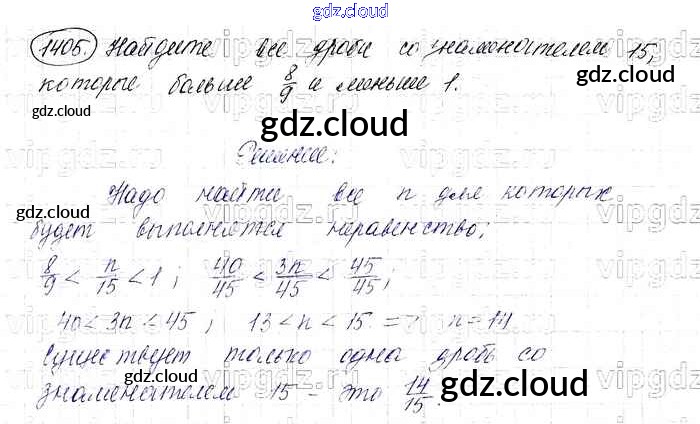 gdz.cloud
1405. Найдите все дроби со знаменателем 15,
которые больше 8/9 и меньше 1.
gdz.cloud
gdz.cloud
gdz.cloud
Решение:
Надо найти все n для которых
gdz.cloud
будет выполняется неравенство;
8/9 < n/15 < 1; 40/45 < 3n/45 < 45/45;
40 < 3n < 45; 13 < n < 15 => n = 14
Существует только одна дробь со
gdz.cloud
знаменателем 15 - это 14/15.
gdz.cloud